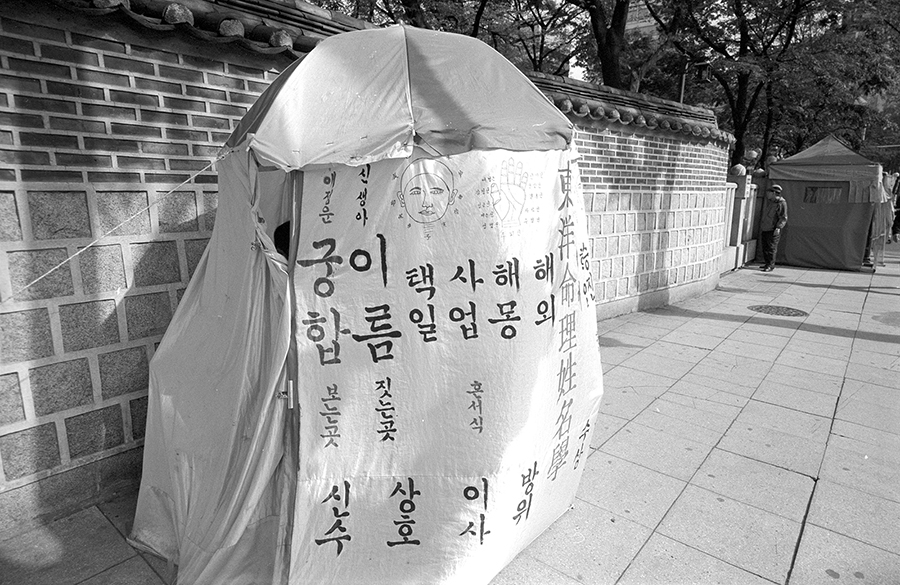 애정운
신생아
궁합
보는곳
이름
짓는곳
택일
사업
혼서식
해몽
해외
東洋命理姓名學
수상
신수
상호
이사
방위